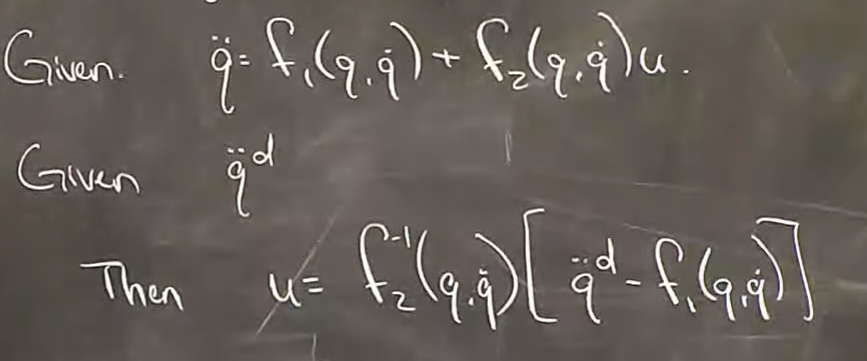 Given. q̈ = f₁(q, q̇) + f₂(q, q̇)u.
Given q̈ᵈ
Then u = f₂⁻¹(q, q̇)[q̈ᵈ - f₁(q, q̇)]